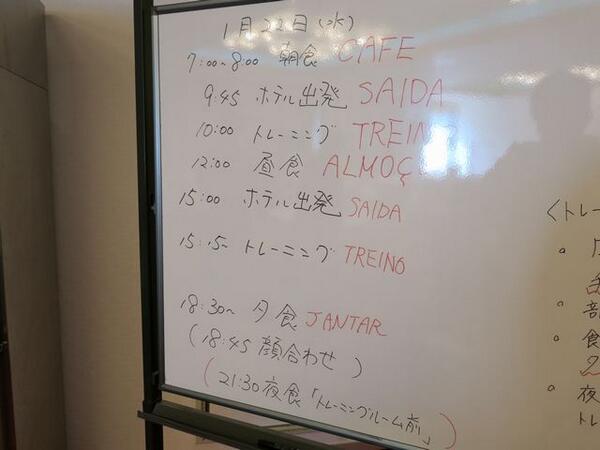 1月22日(水)
7:00~8:00 朝食 CAFE
9:45 ホテル出発 SAIDA
10:00 トレーニング TREINO
12:00 昼食 ALMOÇ
15:00 ホテル出発 SAIDA
15:15~ トレーニング TREINO
18:30~ 夕食 JANTAR
(18:45 顔合わせ)
(21:30 夜食「トレーニングルーム前」)
<トレー
食
夜
トレ